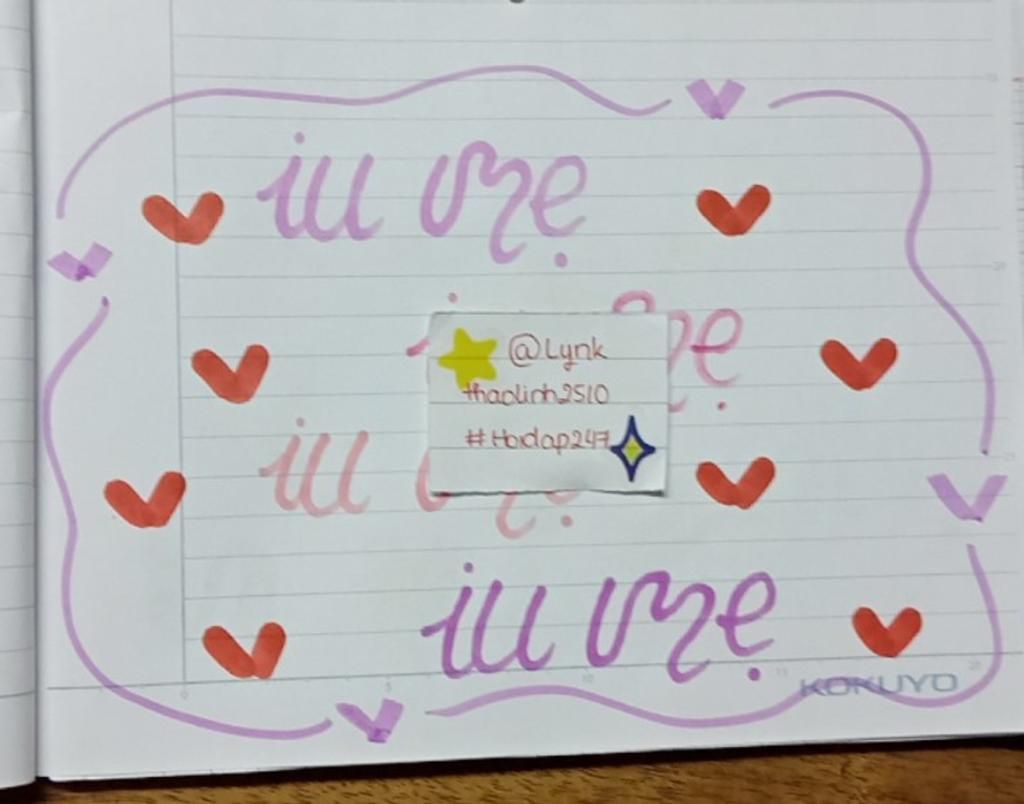 iu mẹ
@Lynk
thaolinh2510
#Hoidap247
iu
iu mẹ
KOKUYO